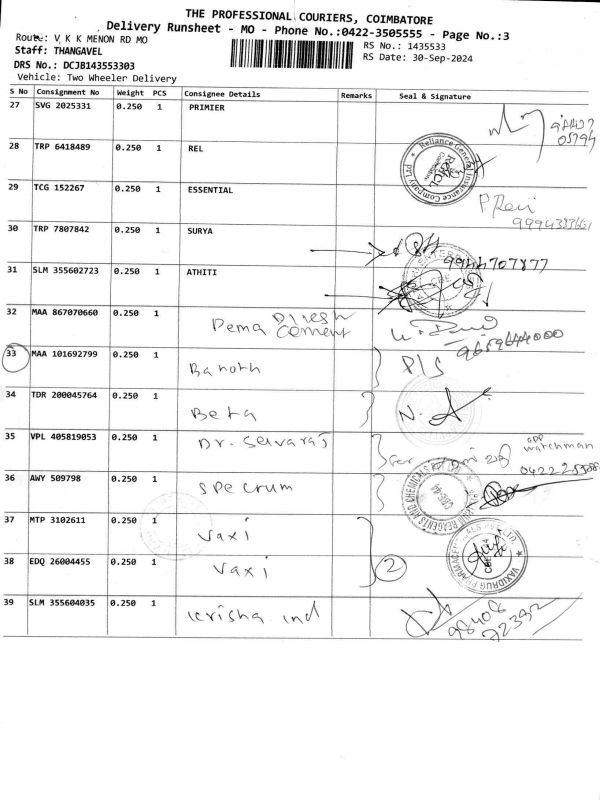 THE PROFESSIONAL COURIERS, COIMBATORE
Delivery Runsheet - MO - Phone No.:0422-3505555 - Page No.:3
Route: V K K MENON RD MO
RS No.: 1435533
Staff: THANGAVEL
RS Date: 30-Sep-2024
DRS No.: DCJB143553303
Vehicle: Two Wheeler Delivery
S No Consignment No Weight PCS Consignee Details Remarks Seal & Signature
27 SVG 2025331 0.250 1 PRIMIER
28 TRP 6418489 0.250 1 REL
Reliance General Insurance Company Ltd
29 TCG 152267 0.250 1 ESSENTIAL
30 TRP 7807842 0.250 1 SURYA
9944707877
31 SLM 355602723 0.250 1 ATHITI
32 MAA 867070660 0.250 1 Dema Diresh Cement
9659644000
33 MAA 101692799 0.250 1 P/S
34 TDR 200045764 0.250 1 Beta
35 VPL 405819053 0.250 1 Dr. Selvaraj
opp watchman
36 AWY 509798 0.250 1 Specrum
REAGENTS AND CHEMICALS
37 MTP 3102611 0.250 1 Vaxi
38 EDQ 26004455 0.250 1 Vaxi
2
39 SLM 355604035 0.250 1 krisha ind
98408
72392